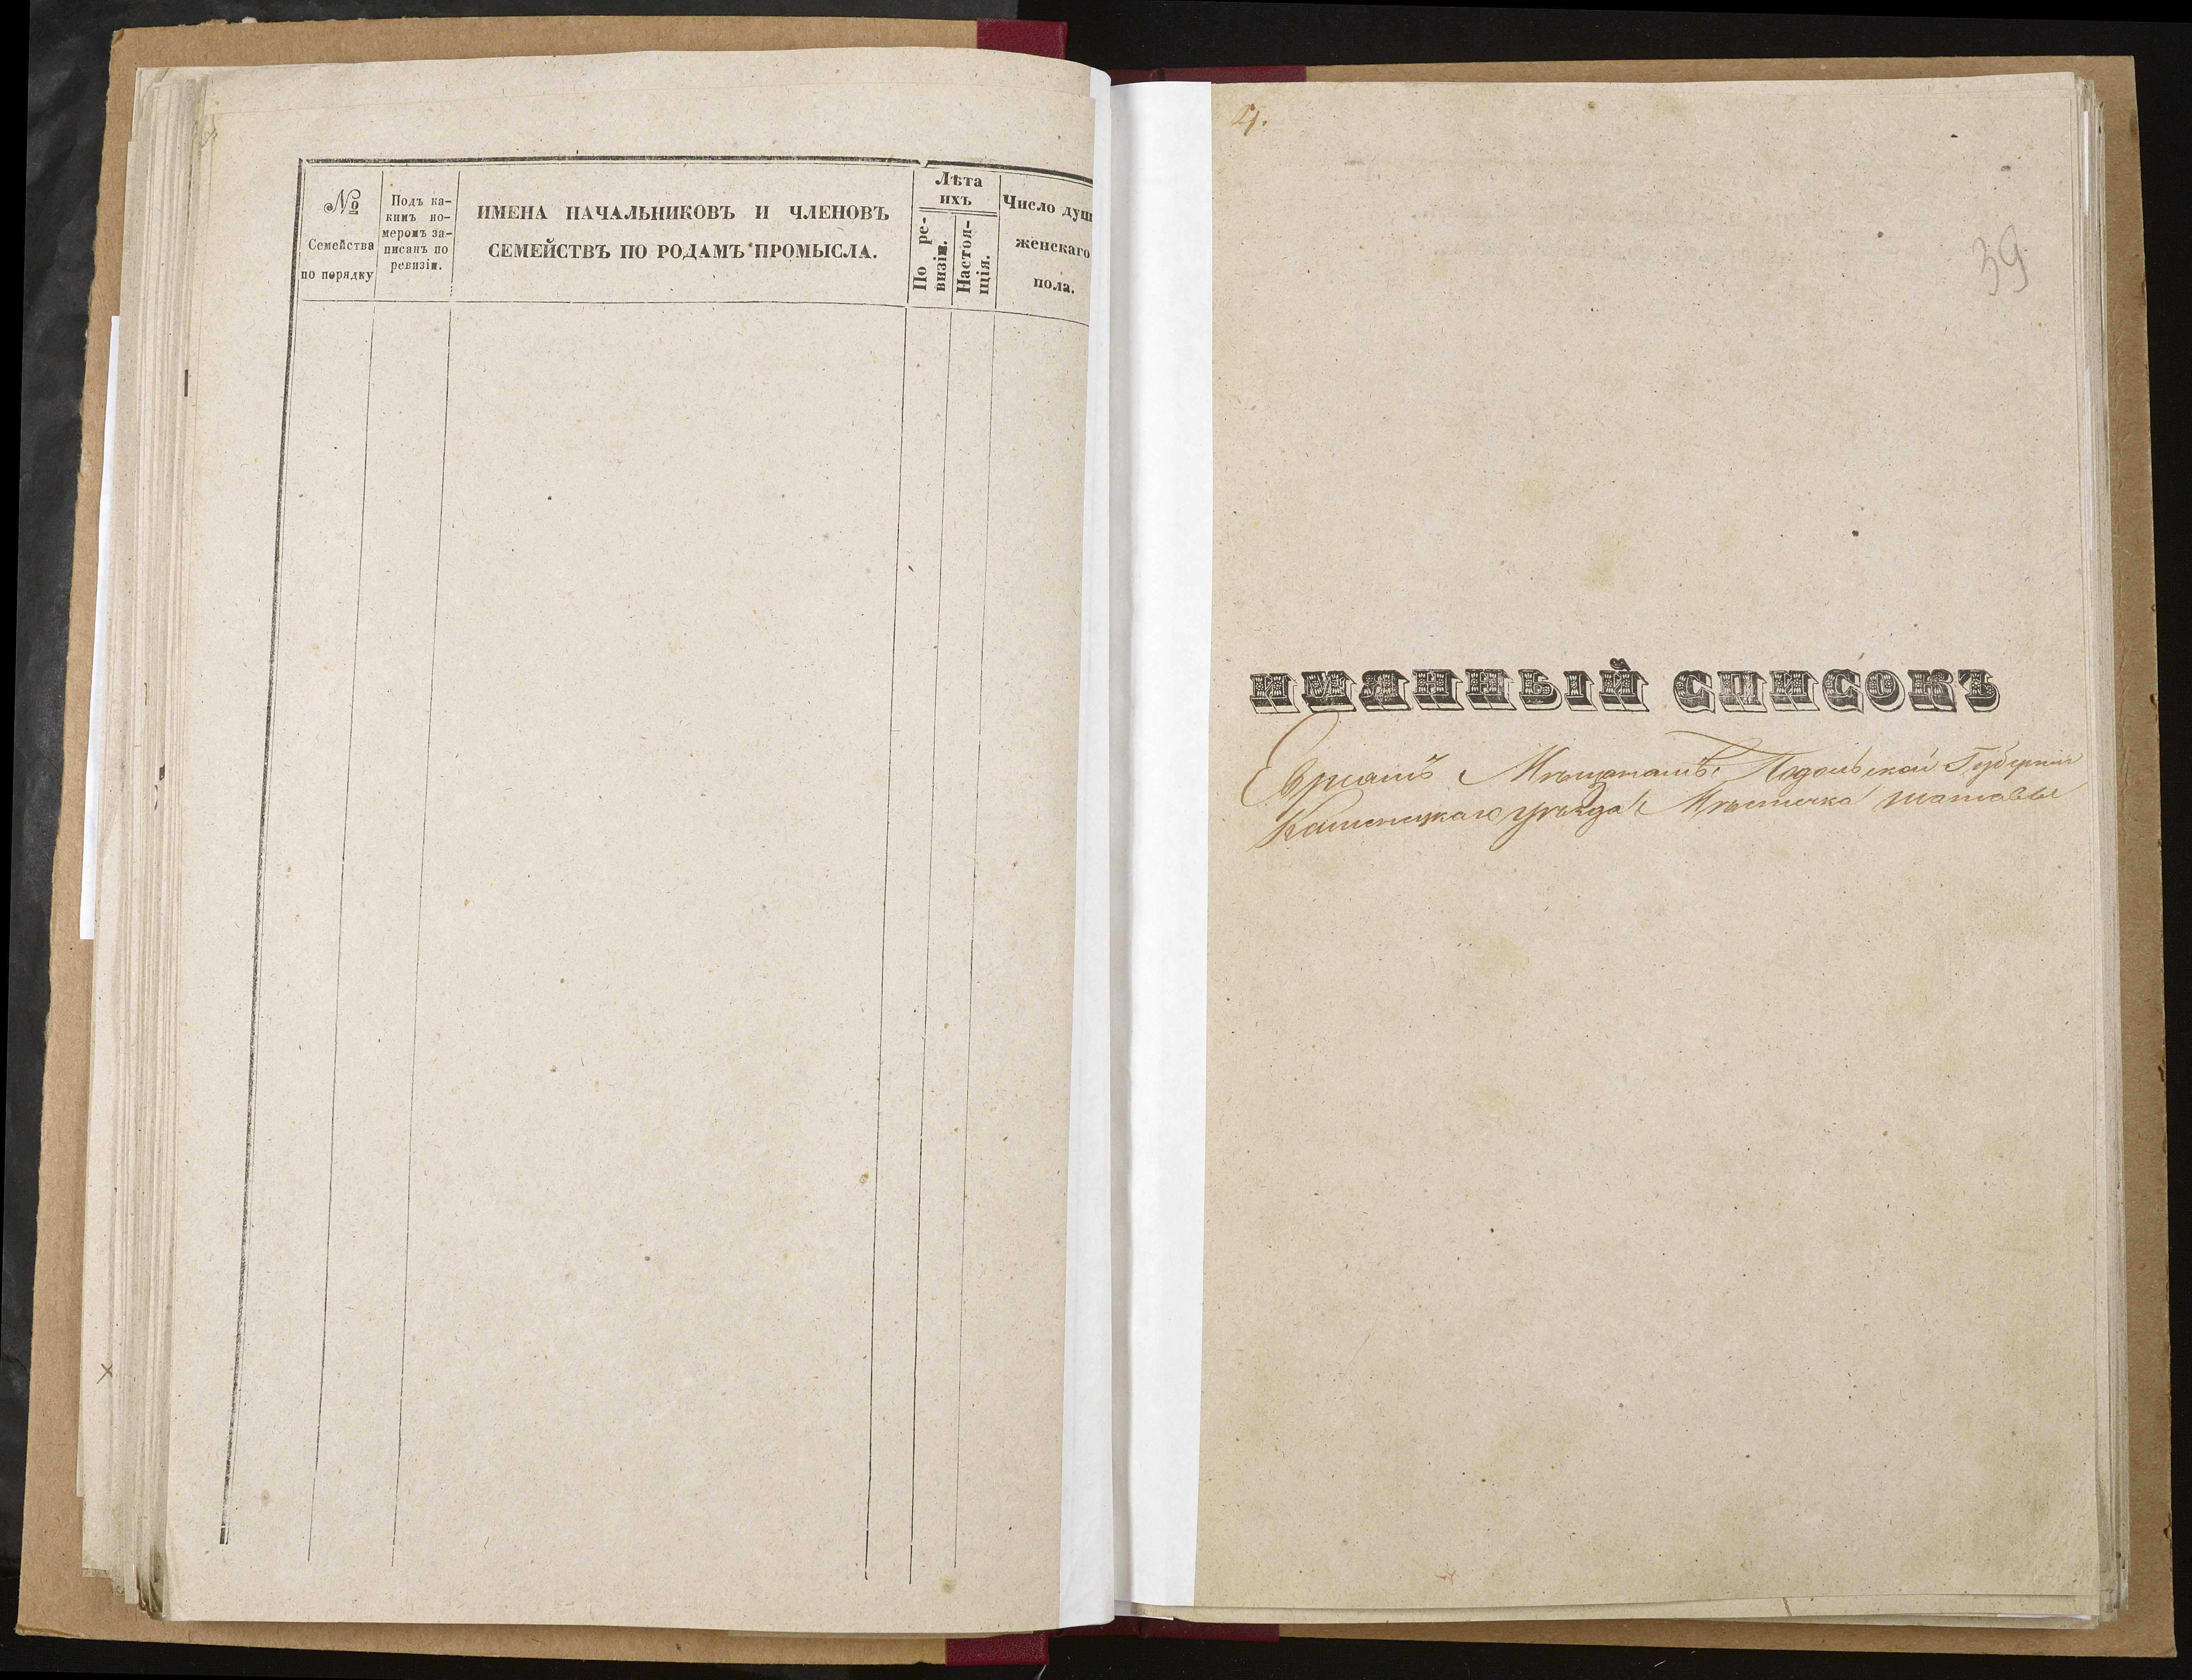 №
Семейства
по порядку
Подъ ка-
кимъ но-
меромъ за-
писанъ по
ревизіи.
ИМЕНА НАЧАЛЬНИКОВЪ И ЧЛЕНОВЪ
СЕМЕЙСТВЪ ПО РОДАМЪ ПРОМЫСЛА.
Лѣта
ихъ
По ре-
визіи.
Настоя-
щія.
Число душ
женскаго
пола.
4.
39
ИМЯННЫЙ СПИСОКЪ
Евреамъ Мѣщанамъ Подольской Губерніи
Каменецкаго уѣзда Мѣстечка Шатавы